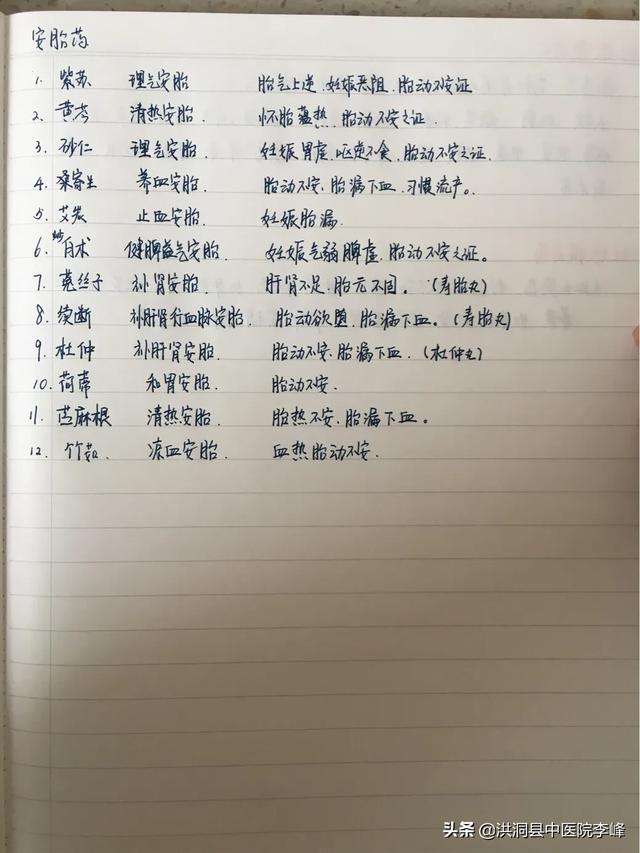 安胎药
1. 紫苏 理气安胎 胎气上逆、妊娠恶阻、胎动不安证
2. 黄芩 清热安胎. 怀胎蕴热、胎动不安之证.
3. 砂仁 理气安胎. 妊娠胃虚、呕逆不食、胎动不安之证.
4. 桑寄生 养血安胎. 胎动不安、胎漏下血、习惯流产。
5. 艾炭 止血安胎. 妊娠胎漏.
6. 炒白术 健脾益气安胎. 妊娠气弱脾虚、胎动不安之证。
7. 菟丝子 补肾安胎. 肝肾不足、胎元不固。(寿胎丸)
8. 续断 补肝肾行血脉安胎. 胎动欲堕、胎漏下血。(寿胎丸)
9. 杜仲 补肝肾安胎. 胎动不安、胎漏下血.(杜仲丸)
10. 荷蒂 和胃安胎. 胎动不安.
11. 苎麻根 清热安胎. 胎热不安、胎漏下血。
12. 竹茹. 凉血安胎. 血热胎动不安.
头条 @洪洞县中医院李峰